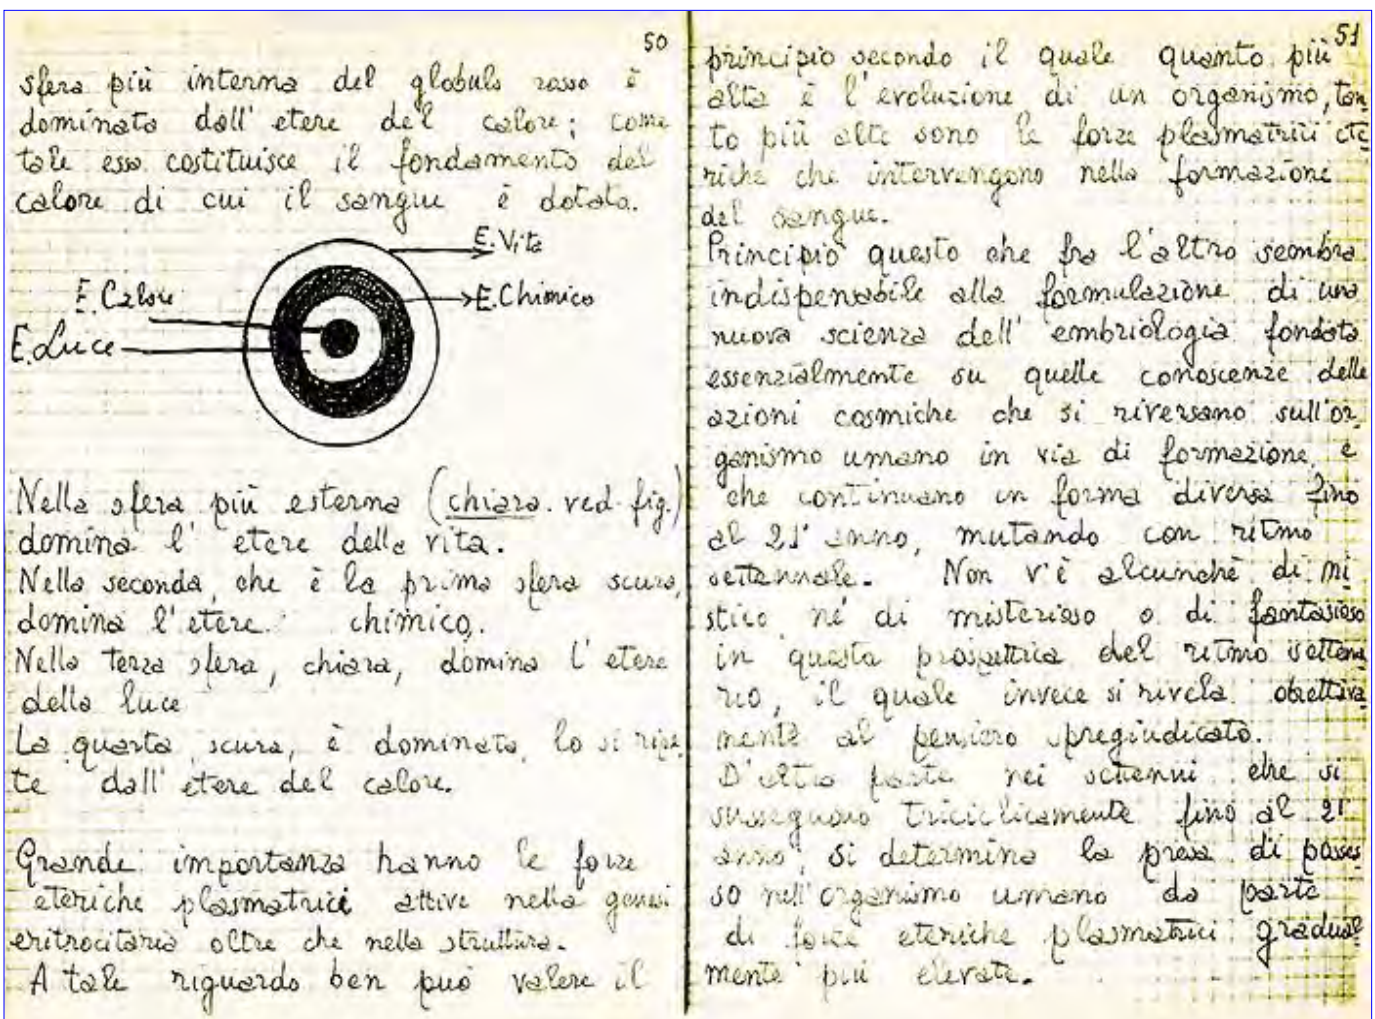 50
sfera più interna del globulo rosso è
dominata dall'etere del calore; come
tale esso costituisce il fondamento del
calore di cui il sangue è dotato.
E. Vita
E. Calore
E. Chimico
E. Luce
Nella sfera più esterna (chiara. ved. fig.)
domina l'etere della vita.
Nella seconda, che è la prima sfera scura,
domina l'etere chimico.
Nella terza sfera, chiara, domina l'etere
della luce
La quarta, scura, è dominata, lo si ripe
te dall'etere del calore.
Grande importanza hanno le forze
eteriche plasmatrici attive nella genesi
eritrocitaria oltre che nella struttura.
A tale riguardo ben può valere il
51
principio secondo il quale quanto più
alta è l'evoluzione di un organismo, tan
to più alte sono le forze plasmatrici ete
riche che intervengono nella formazione
del sangue.
Principio questo che fra l'altro sembra
indispensabile alla formulazione di una
nuova scienza dell'embriologia fondata
essenzialmente su quelle conoscenze delle
azioni cosmiche che si riversano sull'or
ganismo umano in via di formazione, e
che continuano in forma diversa fino
al 21° anno, mutando con ritmo
settennale. Non v'è alcunchè di mi
stico né di misterioso o di fantasioso
in questa prospettiva del ritmo settena
rio, il quale invece si rivela obiettiva
mente al pensiero spregiudicato.
D'altra parte nei settenni che si
susseguono triciclicamente fino al 21°
anno, si determina la presa di posses
so nell'organismo umano da parte
di forze eteriche plasmatrici gradual
mente più elevate.